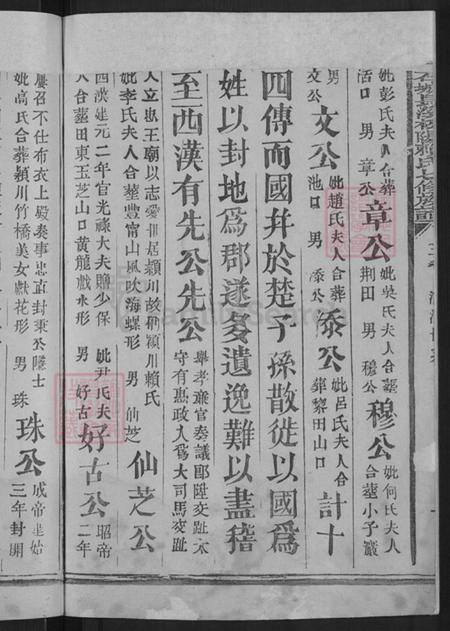 妣彭氏夫人合葬
活口 男 章公
章公
妣吳氏夫人合葬
荆田 男 穆公
穆公
妣何氏夫人
合葬小子巖
男
文公
文公
妣趙氏夫人合葬
池口 男 泰公
泰公
妣呂氏夫人合
葬黎田山口
計十
四傳而國并於楚子孫散徙以國爲
姓以封地爲郡遂多遺逸難以盡稽
至西漢有先公先公
舉孝廉官奏議郎陞交趾太
守有惠政人爲大司馬交趾
人立忠王廟以志愛 居潁川故 潁川賴氏
妣李氏夫人合葬豐甯山風吹海螺形 男 仙芝
仙芝公
西漢建元二年官光祿大夫贈少保 妣尹氏夫
人合葬田東玉芝山口黃龍戲水形 男 好古
好古公
昭帝
二年
屢召不仕布衣上殿奏事忠直封秉公隱士
妣高氏合葬潁川竹橋美女獻花形 男 珠
珠公
成帝 始
三年封開